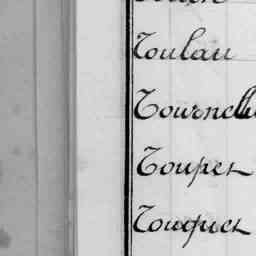 Toulau
Tournelle
Toupet
Touquet